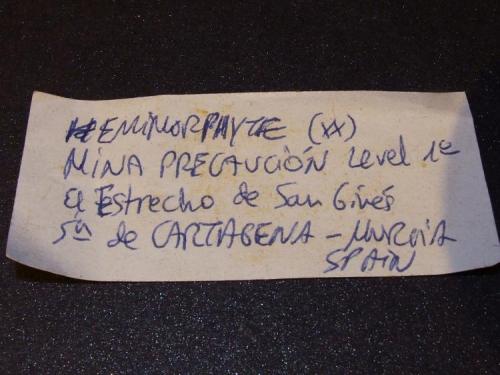 HEMIMORPHYTE (XX)
MINA PRECAUCIÓN Level 1º
El Estrecho de San Ginés
Sª de CARTAGENA - MURCIA
SPAIN